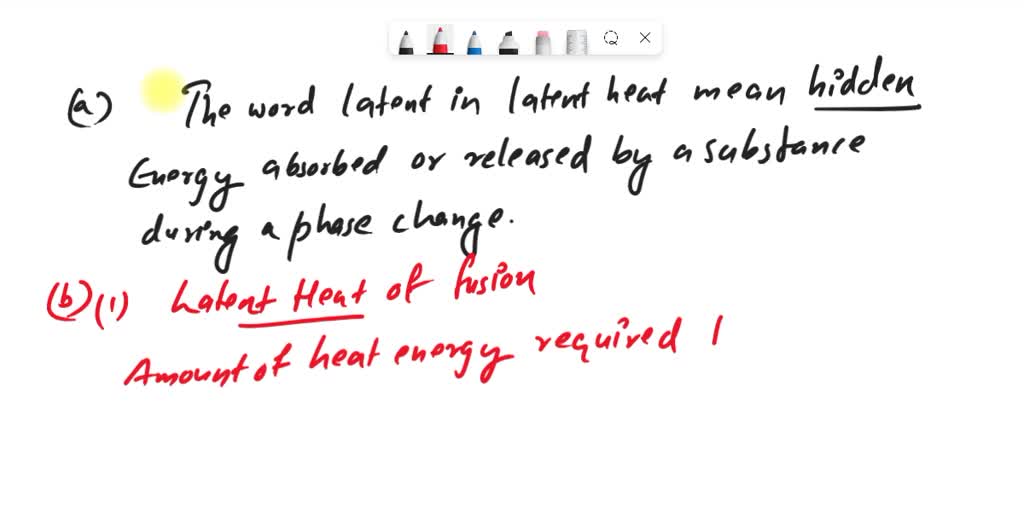 (a) The word latent in latent heat mean hidden
Energy absorbed or released by a substance
during a phase change.
(b) (1) Latent Heat of fusion
Amount of heat energy required l